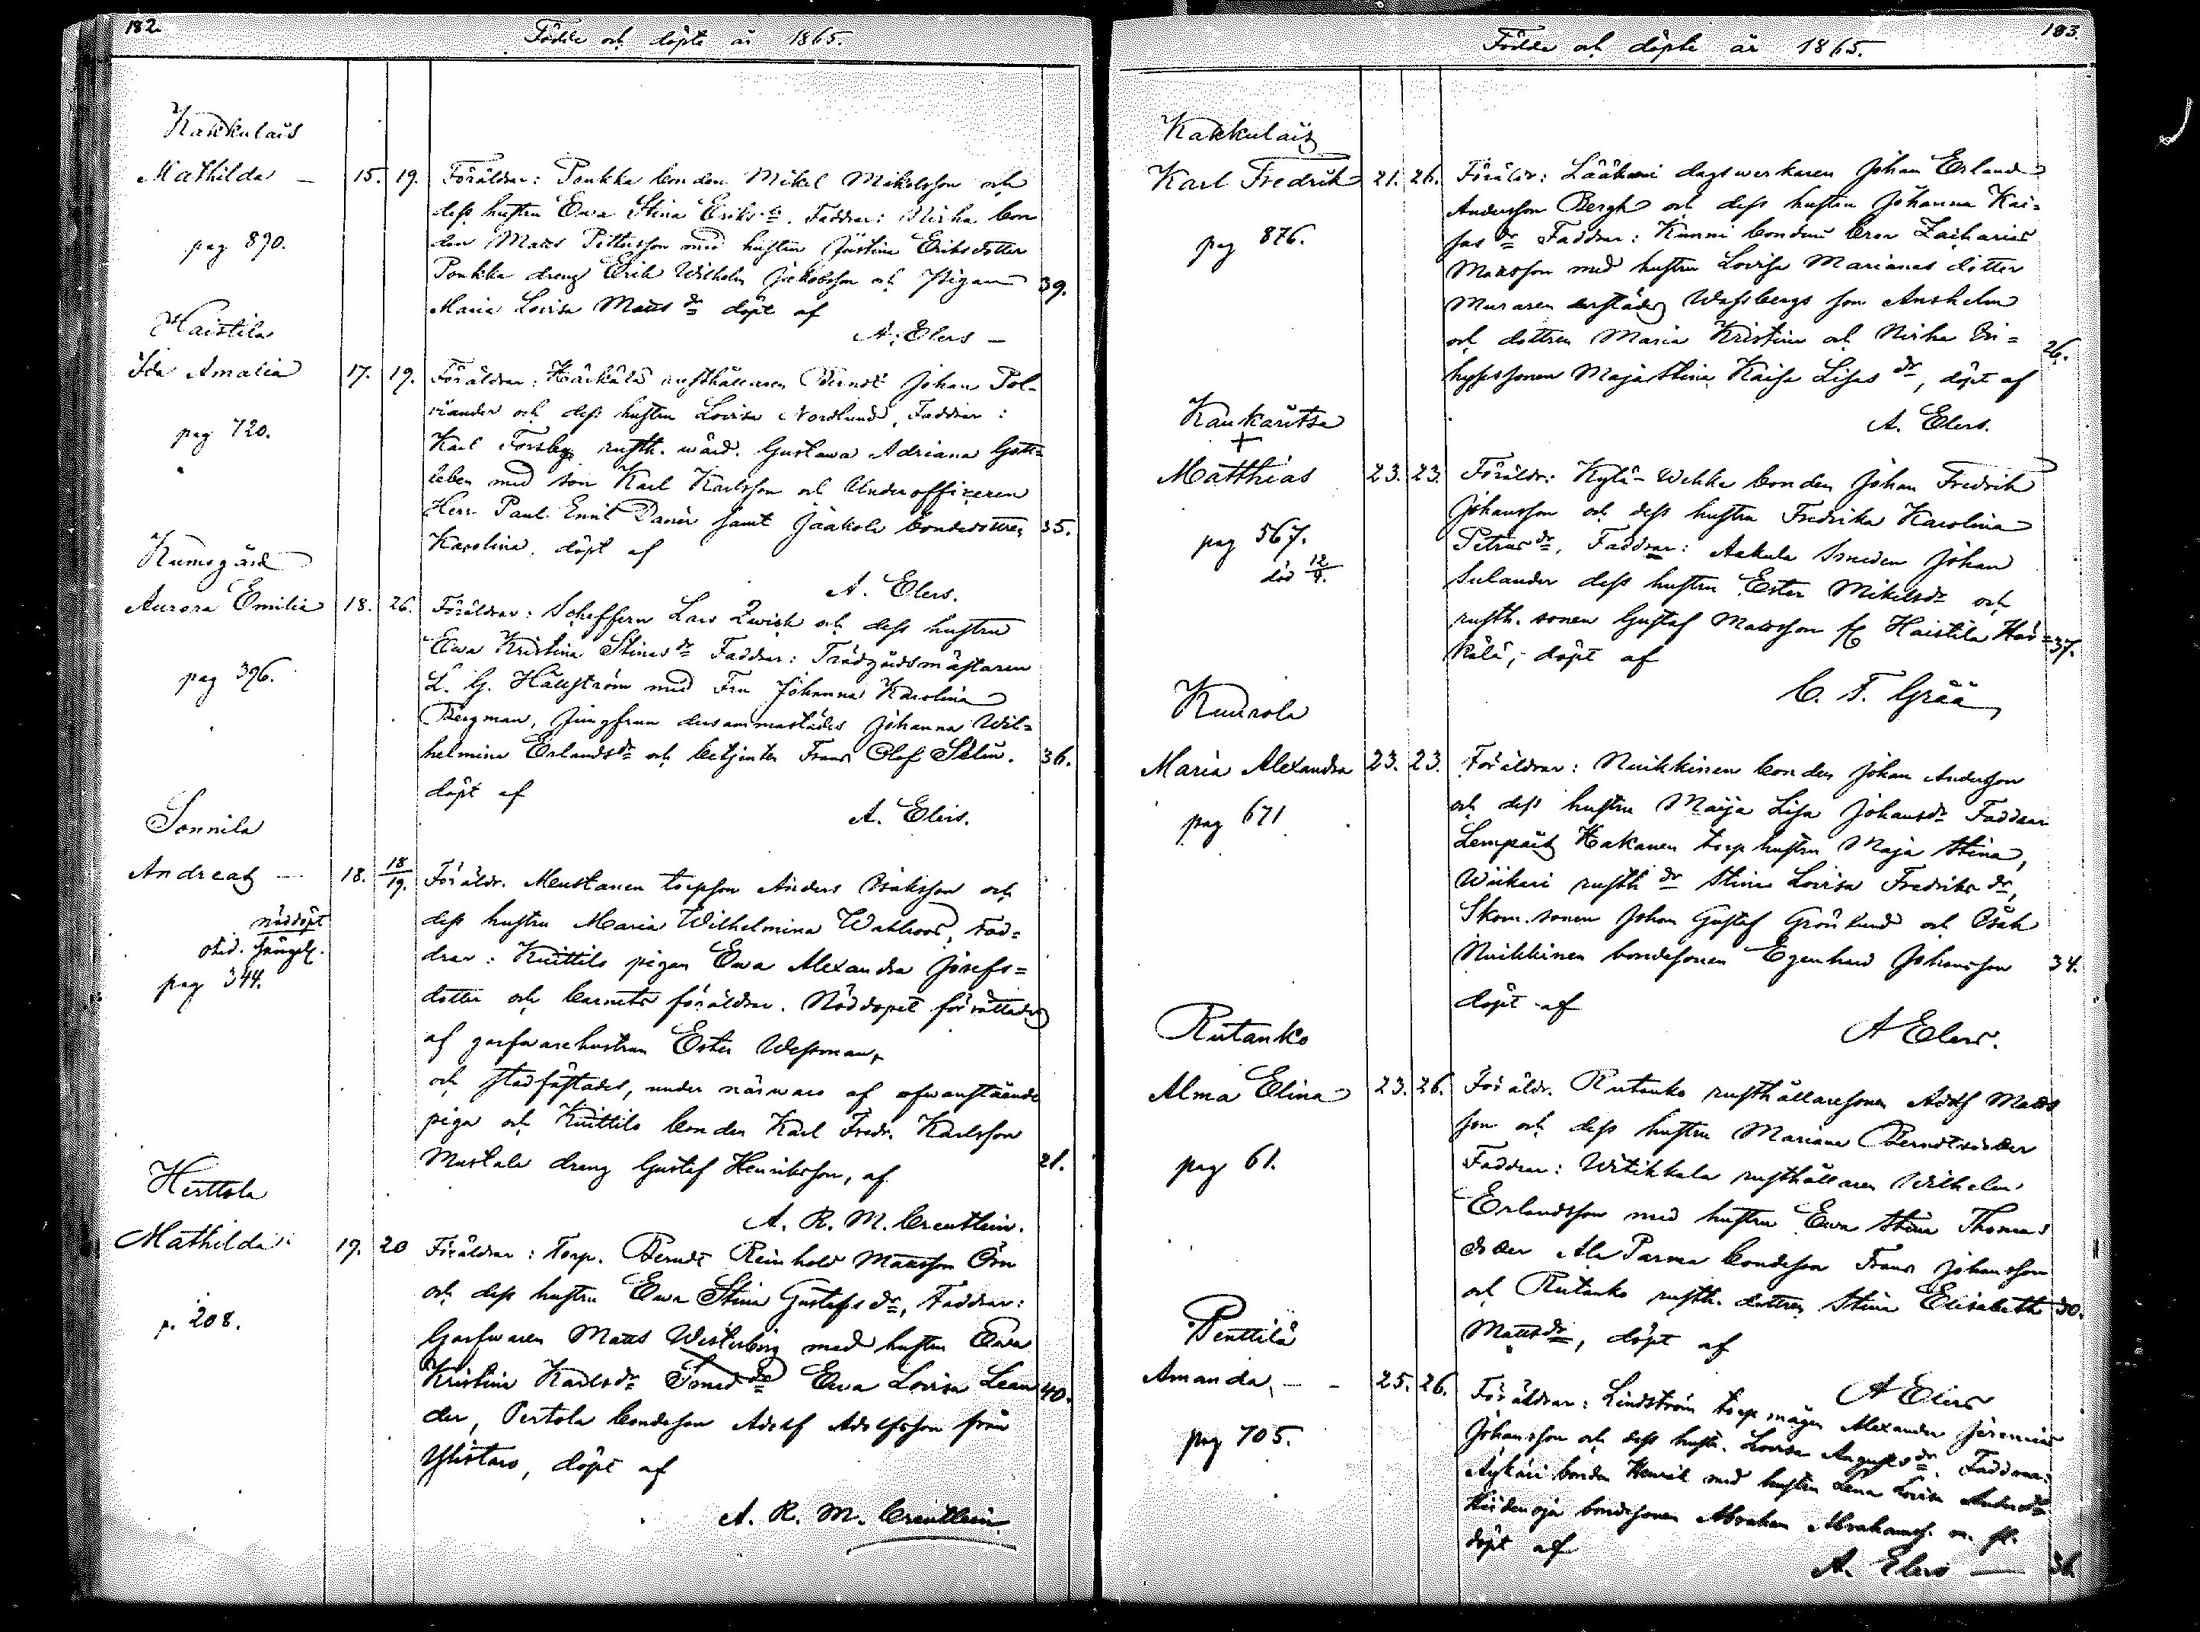 182.
Födde och döpte år 1865.
Kakkulais
Mathilda — 15. 19. Föräldrar: Poukka bonden Mikel Mikelsson och
dess hustru Ewa Stina Eriksdr. Faddrar: Nirha bon
den Matts Pettersson med hustru Justina Eriksdotter
pag 890.
Poukka dreng Erik Wilhelm Jakobsson och Pigan 39.
Maria Lovisa Mattsdr döpt af
A. Elers —
Haistila
Ida Amalia 17. 19. Föräldrar: Härkälä rusthållaren Berndt Johan Pol-
viander och dess hustru Lovisa Nordlund, Faddrar:
pag 720.
Karl Forsberg rusth. wärd. Gustawa Adriana Gott=
leben med son Karl Karlsson och Underofficeren
Herr Paul Emil Danér samt Jaakola bondedottren 35.
Karolina, döpt af
A. Elers.
Kumogård
Aurora Emilia 18. 26. Föräldrar: Scheffern Lars Qwick och dess hustru
Ewa Kristina Stinasdr Faddrar: Trädgårdsmästaren
pag 396.
L. G. Häggström med Fru Johanna Karolina
Bergman, Jungfrun dersammastädes Johanna Wil=
helmina Erlandsdr och betjenten Frans Olof Selin. 36.
döpt af
A. Elers.
Sonnila
Andreas — 18. 18/19. Föräldr. Meustanen torpson Anders Isaksson och
nöddöpt
dess hustru Maria Wilhelmina Wahlroos, Fad=
pag 344.
drar: Kuittilo pigan Ewa Alexandra Josefs=
dotter och barnets föräldrar. Nöddopet förrättades
af garfwarehustrun Ester Westman,
och stadfästades, under närwaro af ofwanstående
piga och Kuittilo bonden Karl Fredr. Karlsson
Mustala dreng Gustaf Henriksson, af 21.
A. R. M. Creutlein.
Herttola
Mathilda 19. 20 Föräldrar: Torp. Berndt Reinhold Mattsson Örn
och dess hustru Ewa Stina Gustafsdr, Faddrar:
p. 208.
Garfwaren Matts Westerberg med hustru Ewa
Kristina Karlsdr Smeddr Ewa Lovisa Lean 40.
der, Pertola bondeson Adolf Adolfsson från
Ylistaro, döpt af
A. R. M. Creutlein.
183.
Födde och döpte år 1865.
Kakkulais
Karl Fredrik 21. 26. Föräldr: Lääkäri dagswerkaren Johan Erland
Andersson Bergh och dess hustru Johanna Kai-
pag 876.
sasdr Faddrar: Kunni bondens bror Zacharias
Mattsson med hustru Lovisa Marianas dotter
Muraren derstädes Wassbergs son Anshelm
och dottren Maria Kristina och Nirha In=
hyssonen Maja Stina Kaisa Lisasdr, döpt af 26.
A. Elers.
Kaukaritsa
+
Matthias 23. 23. Föräldr: Kylä-Wehka bonden Johan Fredrik
Johansson och dess hustru Fredrika Karolina
pag 567.
Petrusdr, Faddrar: Aakula Smeden Johan
död 12/9.
Sulander dess hustru Ester Mikelsdr och
rusth. sonen Gustaf Mattsson fr Haistila Här= 37.
kälä, döpt af
C. T. Grää
Kuurola
Maria Alexandra 23. 23. Föräldrar: Nuikkinen bonden Johan Andersson
och dess hustru Maija Lisa Johansdr Faddrar
pag 671
Lempäis Kakanen torp hustru Maja Stina,
Wiikari rusth dr Stina Lovisa Fredriksdr,
Skom. sonen Johan Gustaf Grönlund och Isak
Nuikkinen bondesonen Egenhard Johansson 34.
döpt af
A Elers.
Rutanko
Alma Elina 23. 26. Föräldr. Rutanko rusthållaresonen Adolf Matts
son och dess hustru Mariana Berndtsdotter
pag 61.
Faddrar: Witikkala rusthållaren Wilhelm
Erlandsson med hustru Ewa Stina Thomas
dotter Ala Parma bondeson Frans Johansson
och Rutanko rusth. dottren Stina Elisabeth 30.
Mattsdr, döpt af
A Elers
Penttilä
Amanda, — 25. 26. Föräldrar: Lindström torp mågen Alexander Jeremias
Johansson och dess hustr. Lovisa Augustsdr. Faddrar:
pag 705.
Äykäri bonden Henrik med hustru Lena Lovisa Andersdr
bondesonen Abraham Abrahamss. m. fl.
döpt af
A. Elers — 36.